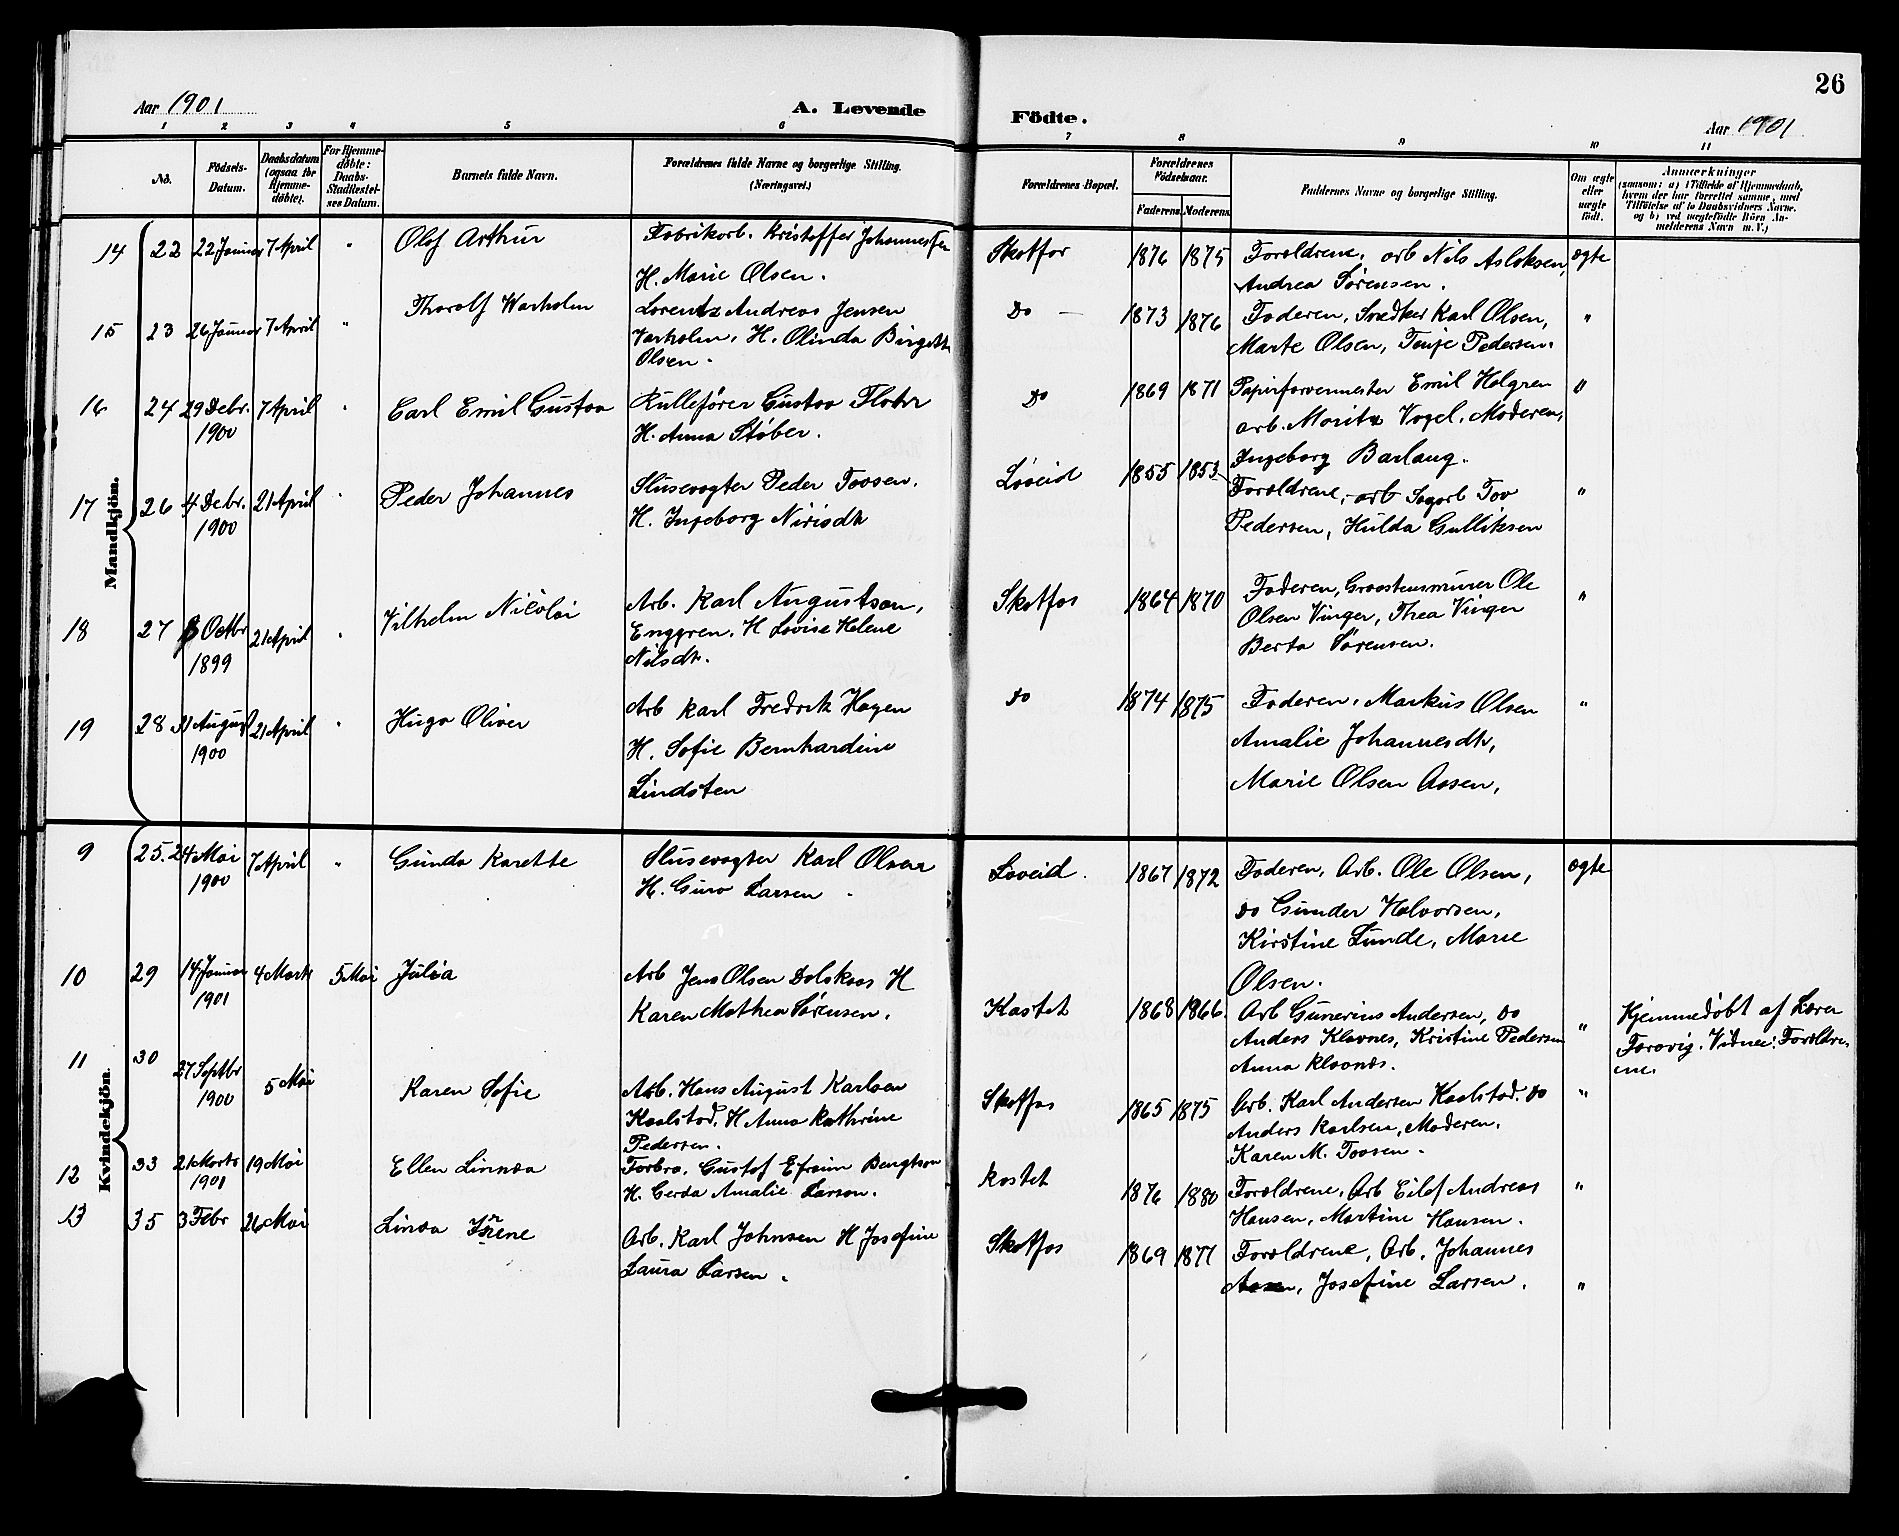 26
Aar 1901
A. Levende
Födte.
Aar 1901
1 2 3 4 5 6 7 8 9 10 11
No.
Födsels-Datum.
Daabsdatum (ogsaa for Hjemme-døbte).
For Hjemme-døbte: Daabs-Stadfæstel-ses Datum.
Barnets fulde Navn.
Forældrenes fulde Navne og borgerlige Stilling. (Næringsvei.)
Forældrenes Bopæl.
Forældrenes Födselsaar.
Faderens. Moderens.
Faddernes Navne og borgerlige Stilling.
Om ægte eller uægte födt.
Anmærkninger
(saasom: a) i Tilfælde af Hjemmedaab,
hvem der har forrettet samme, med
Tilföielse af to Daabsvidners Navne.
og b) ved uægtefödte Börn An-
melderens Navn m. V.)
Mandkjön.
14 22 22 Januar 7 April " Olof Arthur Fabrikarb. Kristoffer Johannessen Skotfos 1876 1875 Forældrene, arb Nils Aslaksen, ægte
H. Marie Olsen. Andrea Sørensen.
15 23 26 Januar 7 April " Thorolf Warholm Lorentz Andreas Jensen Do — 1873 1876 Faderen, Snedker Karl Olsen, "
Varholm, H. Olinda Birgitte Marte Olsen, Tonje Pedersen.
Olsen.
16 24 29 Debr. 7 April " Carl Emil Gustav Rullefører Gustav Flohr Do 1869 1871 Papirfarvermester Emil Holgren "
1900 H. Anna Støber. arb. Moritz Vogel, Moderen,
Ingeborg Barlaug.
17 26 4 Debr. 21 April " Peder Johannes Slusevogter Peder Tovsen. Løveid 1855 1853 Forældrene, arb Sagarb Tov "
1900 H. Ingeborg Nirisdtr Pedersen, Hulda Gulliksen
18 27 8 Octbr 21 April " Vilhelm Nicolai Arb. Karl Augustson, Skotfos 1864 1870 Faderen, Graastensmurer Ole "
1899 Enggren, H Lovise Helene Olsen Vinger, Thea Vinger
Nilsdtr. Berta Sørensen.
19 28 31 August 21 April " Hugo Oliver Arb Karl Fredrik Hagen Do 1874 1875 Faderen, Markus Olsen "
1900 H. Sofie Bernhardine Amalie Johannesdtr,
Lindsten Marie Olsen Aasen,
Kvindekjön.
9 25. 24 Mai 7 April " Gunda Karette Slusevogter Karl Olsen Løveid. 1867 1872 Faderen, Arb. Ole Olsen, ægte
1900 H. Guro Larsen. Do Gunder Halvorsen,
Kirstine Lunde, Marie
Olsen.
10 29 14 Januar 4 Marts 5 Mai Julia Arb Jens Olsen Dalskaas H Kastet 1868 1866. Arb Gunerius Andersen, Do " Hjemmedøbt af Lærer
1901 Karen Mathea Sørensen. Anders Klovnes, Kristine Pedersen Farovig. Vidner: Forældre-
Anna Klovnes. ne.
11 30 27 Septbr 5 Mai Karen Sofie Arb. Hans August Karlsen Skotfos 1865 1875 Arb. Karl Andersen Kaalstad, Do "
1900 Kaalstad, H Anna Kathrine Anders Karlsen, Moderen,
Pedersen. Karen M. Tovsen.
12 33 21 Marts 19 Mai Ellen Linnea Farbra. Gustaf Efraim Bengtson Kastet 1876 1880 Forældrene, Arb Eilef Andreas "
1901 H. Gerda Amalie Larson. Hansen, Martine Hansen.
13 35 3 Febr 26 Mai Linea Irene Arb. Karl Johnsen H Josefine Skotfos 1869 1871 Forældrene, Arb. Johannes
Laura Larsen. Aasen, Josefine Larsen. "